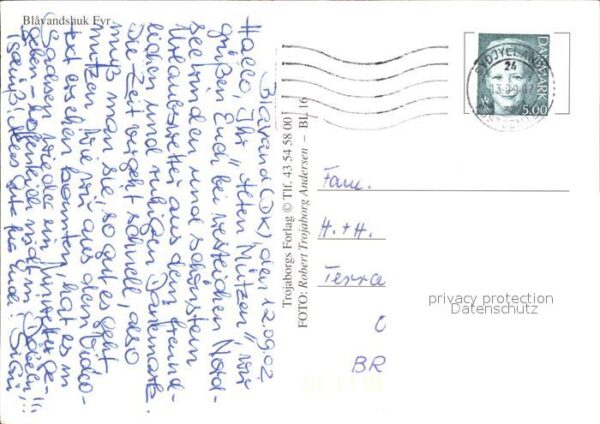 Blåvandshuk Fyr
Blåvand (DK), den 12.09.02
Hallo, Ihr "alten Mützen", wir
grüßen Euch bei reichlichen Nord-
seewinden und schönstem
Urlaubswetter aus dem freund-
lichen und ruhigen Dänemark.
Die Zeit vergeht schnell, also
muß man sie, so gut es geht
nutzen. Wie wir aus dem Video-
text ersehen konnten, hat es in
Sachsen wieder ein
gegeben - hoffentlich nicht in
Alles Gute für Euch!
Trojaborgs Forlag © Tlf. 43 54 58 00
FOTO: Robert Trojaborg Andersen – BL 16
DANMARK
5.00
SYDJYLLANDS
24
13.09.02
POSTCENTER
Fam.
H.+H.
Terra
BR
privacy protection
Datenschutz